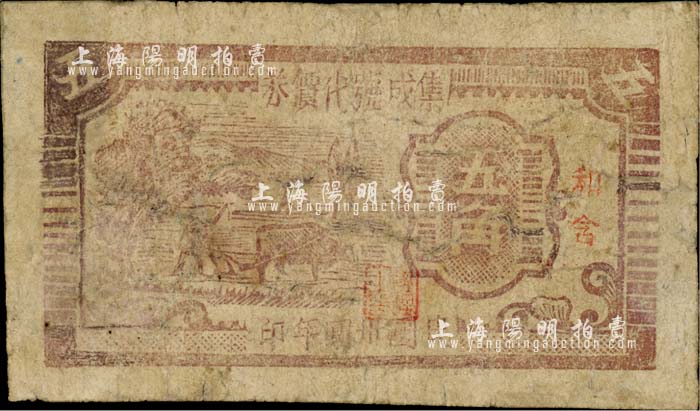 上海陽明拍賣
www.yangmingauction.com
五
五
集成號代價券
上海陽明拍賣
www.yangmingauction.com
五角
和含
國卅四年印
上海陽明拍賣
www.yangmingauction.com